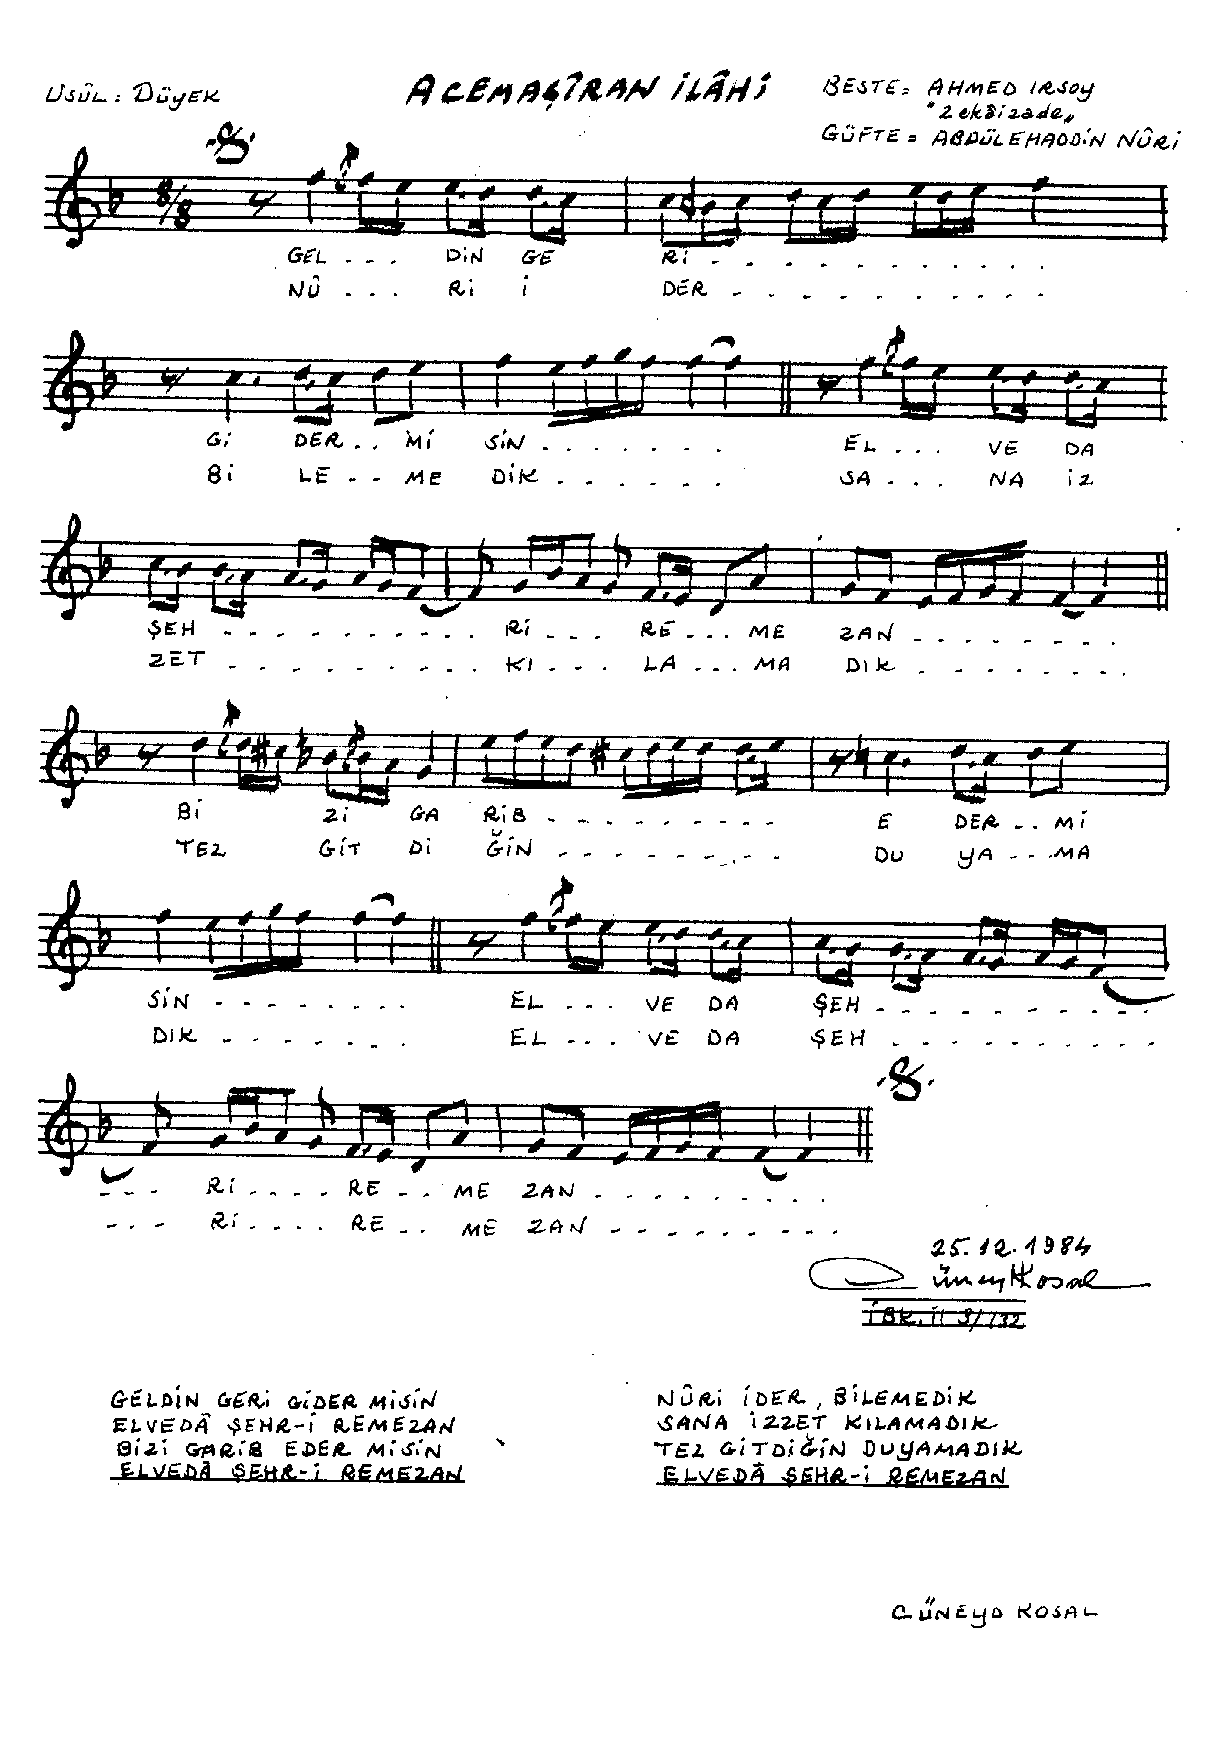 USÛL : DÜYEK
ACEMAŞÎRAN İLÂHİ
BESTE = AHMED IRSOY
"Zekâizade"
GÜFTE = ABDÜLEHADDİN NÛRİ
8/8
GEL - - - DİN GE Rİ - - - - - - - - - -
NÛ - - - Rİ İ DER - - - - - - - - -
Gİ DER - - Mİ SİN - - - - - - - EL - - - VE DA
Bİ LE - - ME DİK - - - - - - - SA - - - NA İZ
ŞEH - - - - - - - - - - Rİ - - - RE - - - ME ZAN - - - - - - - -
ZET - - - - - - - - - - KI - - - LA - - - MA DIK - - - - - - - -
Bİ Zİ GA RİB - - - - - - - - - E DER - - Mİ
TEZ GİT Dİ ĞİN - - - - - - - - - DU YA - - - MA
SİN - - - - - - - - EL - - - VE DA ŞEH - - - - - - - - - - -
DIK - - - - - - - EL - - - VE DA ŞEH - - - - - - - - - -
- - - Rİ - - - - RE - - ME ZAN - - - - - - - - -
- - - Rİ - - - - RE - - ME ZAN - - - - - - - - -
25.12.1984
Cüneyd Kosal
GELDİN GERİ GİDER MİSİN
ELVEDÂ ŞEHR-İ REMEZAN
BİZİ GARİB EDER MİSİN
ELVEDÂ ŞEHR-İ REMEZAN
NÛRİ İDER, BİLEMEDİK
SANA İZZET KILAMADIK
TEZ GİTDİĞİN DUYAMADIK
ELVEDÂ ŞEHR-İ REMEZAN
CÜNEYD KOSAL